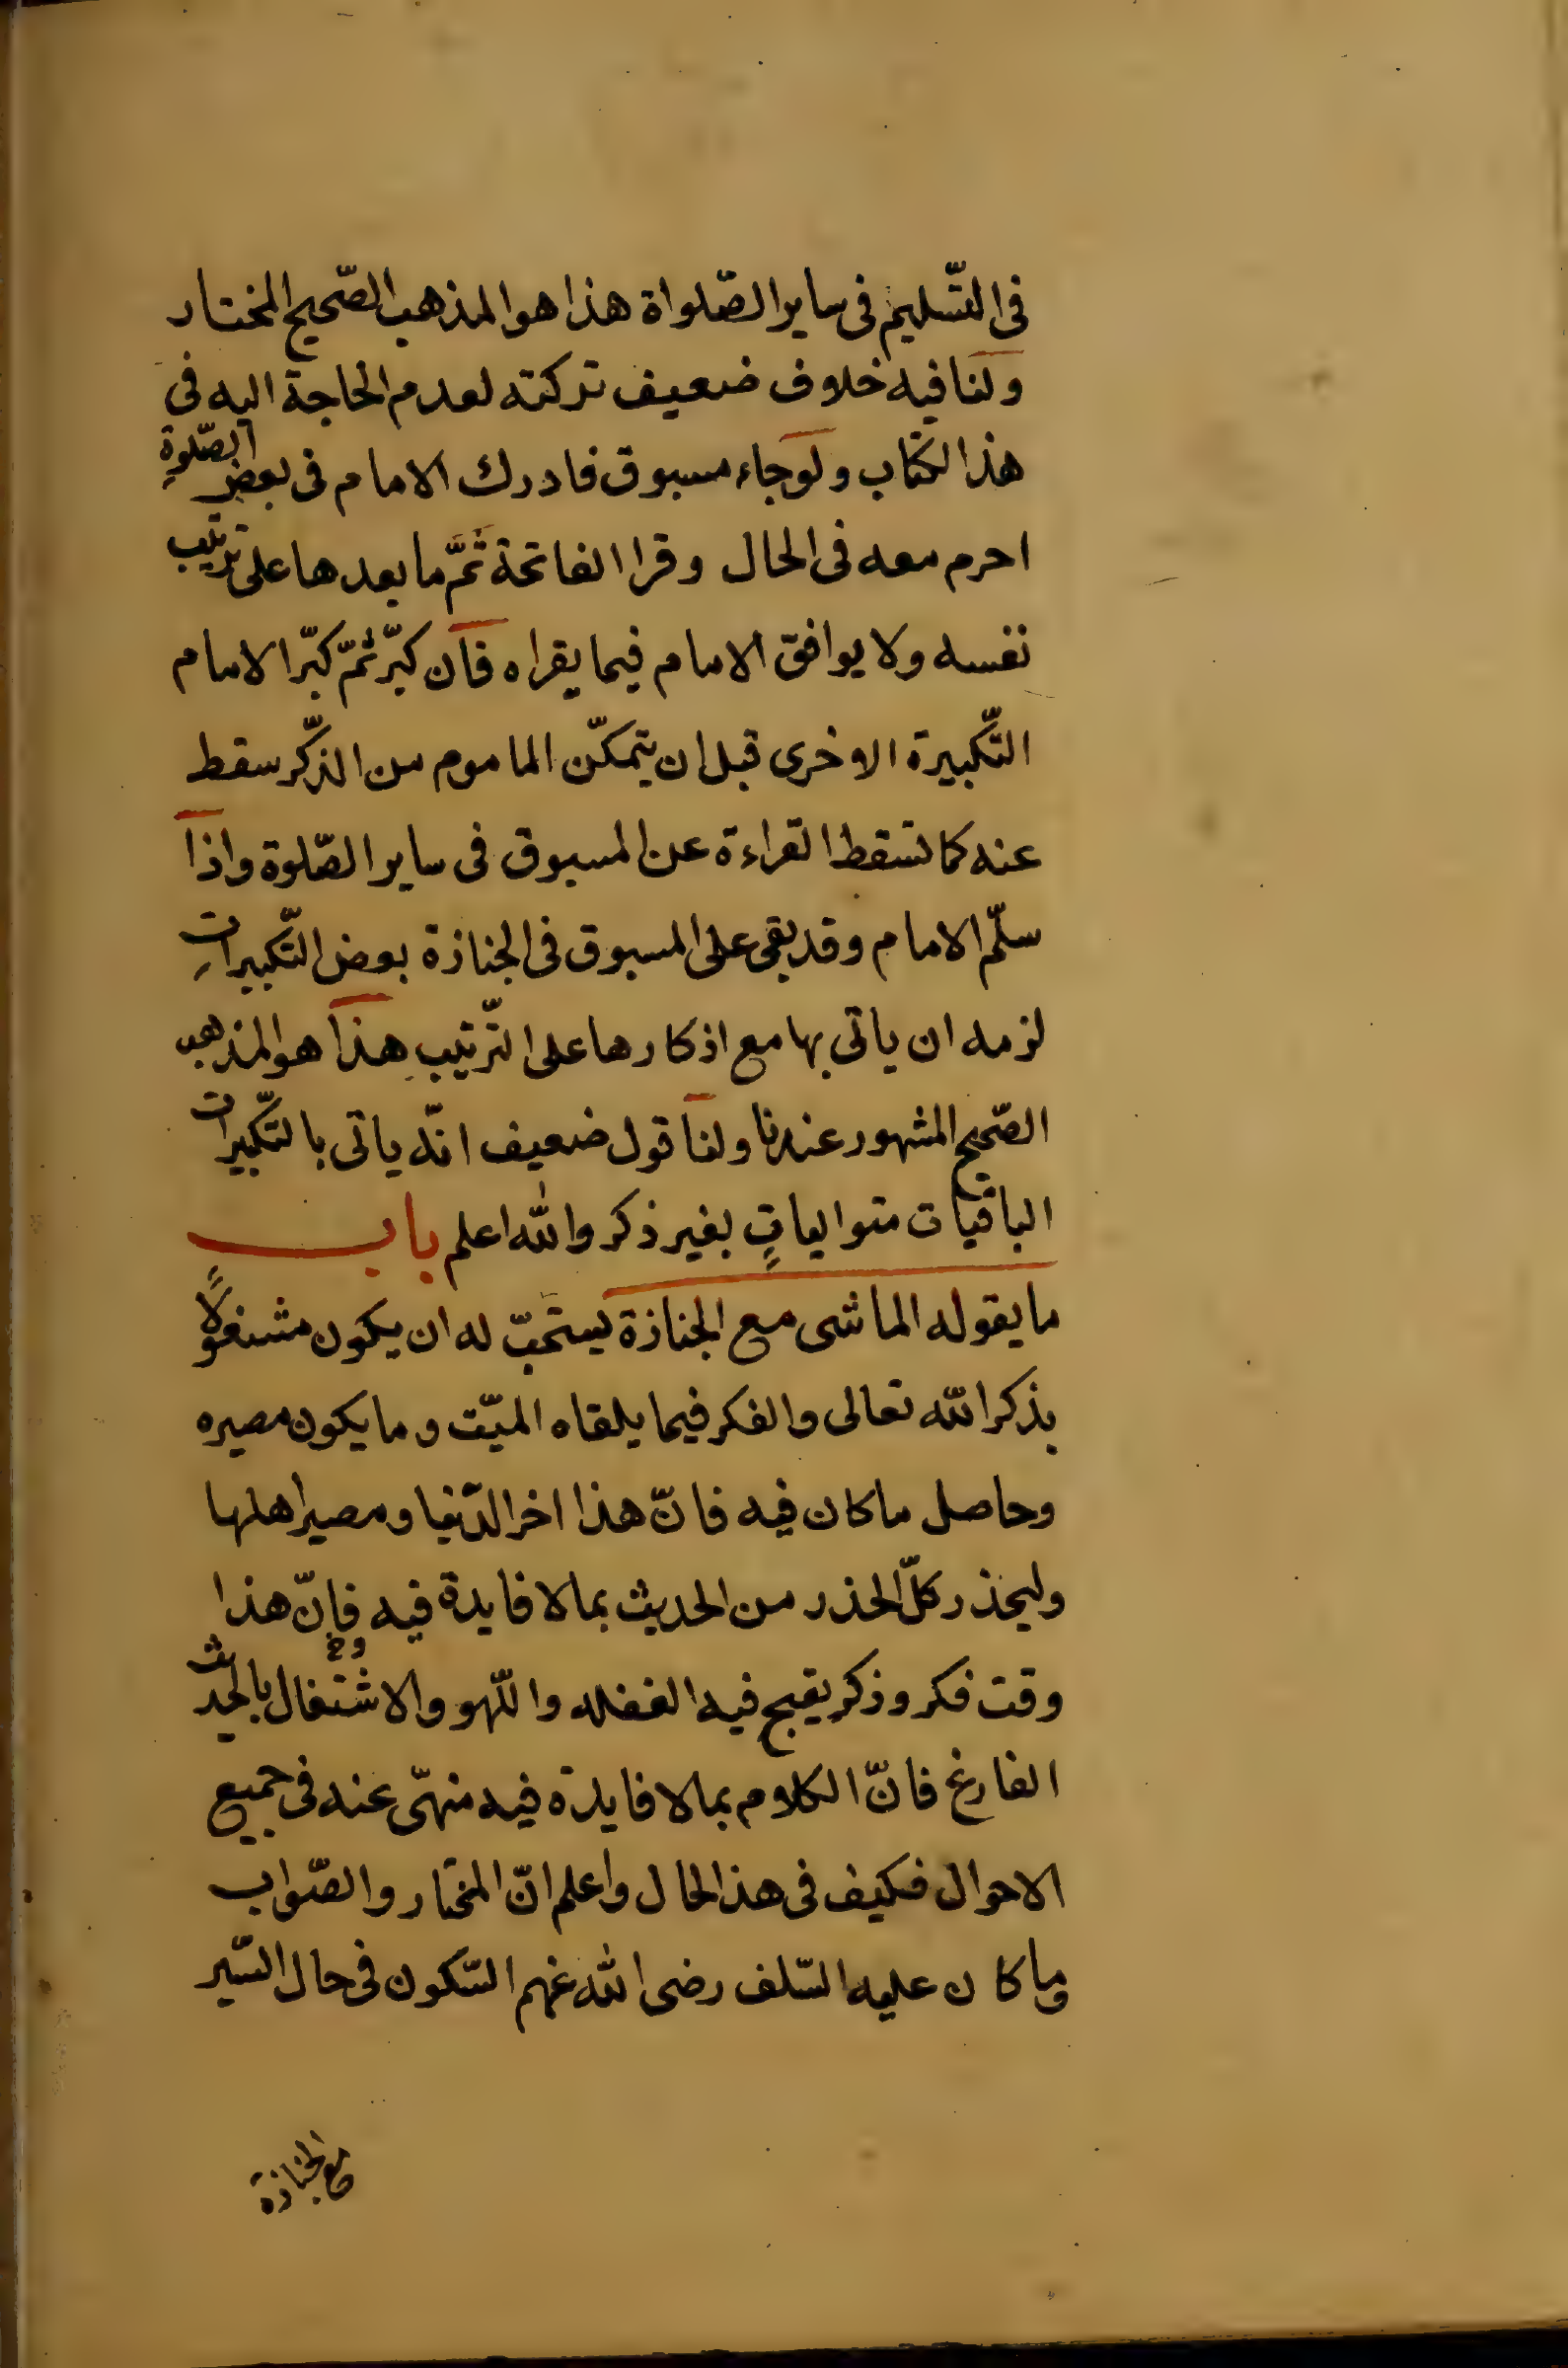 فى التّسليم فى ساير الصّلواة هذا هو المذهب الصّحيح المختار
ولنا فيه خلاف ضعيف تركته لعدم الحاجة اليه فى
هذا الكتاب ولو جاء مسبوق فادرك الامام فى بعض الصّلوةِ
احرم معه فى الحال وقرا الفاتحة ثمَّ ما بعدها على ترتيب
نفسه ولا يوافق الامام فيما يقراه فان كبّر ثمّ كبّر الامام
التّكبيرة الاخرى قبل ان يتمكّن الماموم من الذّكر سقط
عنه كما تسقط القراءة عن المسبوق فى ساير الصّلوة واذا
سلّم الامام وقد بقى على المسبوق فى الجنازة بعض التّكبيراتِ
لزمه ان ياتى بها مع اذكارها على التّرتيب هذا هو المذهب
الصّحيح المشهور عندنا ولنا قول ضعيف انّه ياتى بالتّكبيرات
الباقيات متوالياتٍ بغير ذكر والله اعلم باب
ما يقوله الماشى مع الجنازة يستحبّ له ان يكون مشتغولاً
بذكر الله تعالى والفكر فيما يلقاه الميّت وما يكون مصيره
وحاصل ما كان فيه فانّ هذا اخر الدّنيا ومصير اهلها
وليحذر كلّ الحذر من الحديث بما لا فايدة فيه فانّ هذا
وقت فكر وذكر يقبح فيه الغفله واللّهو والاشتغال بالحديث
الفارغ فانّ الكلام بما لا فايدة فيه منهّى عنه فى جميع
الاحوال فكيف فى هذا الحال واعلم انّ المختار والصّواب
وما كان عليه السّلف رضى الله عنهم السّكون فى حال السّير
مع الجنازة